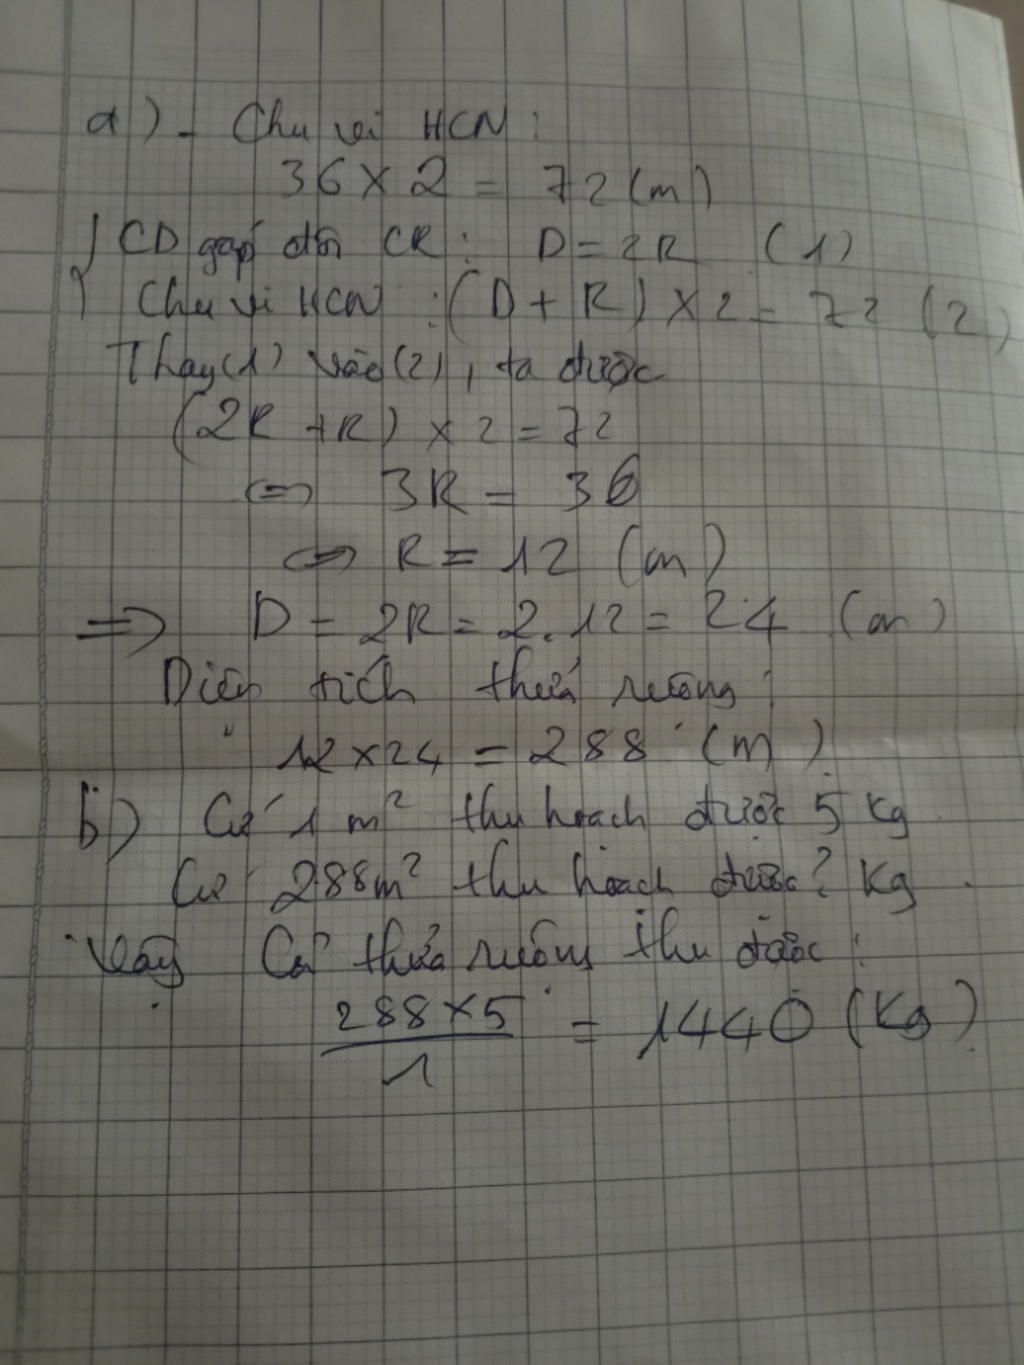 a) - Chu vi HCN:
36 × 2 = 72 (m)
CD gấp đôi CR: D = 2R (1)
Chu vi HCN: (D + R) × 2 = 72 (2)
Thay (1) vào (2), ta được
(2R + R) × 2 = 72
<=> 3R = 36
<=> R = 12 (m)
=> D = 2R = 2.12 = 24 (m)
Diện tích thửa ruộng:
12 × 24 = 288 (m)
b) Cứ 1 m² thu hoạch được 5 kg
Cứ 288m² thu hoạch được ? Kg
Vậy Cả thửa ruộng thu được:
288 × 5 / 1 = 1440 (Kg)